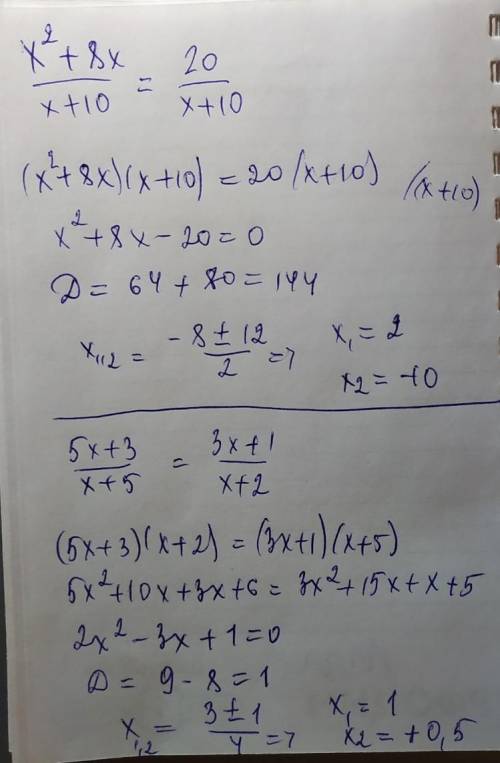 x²+8x / x+10 = 20 / x+10
(x²+8x)(x+10) = 20(x+10) /(x+10)
x²+8x-20=0
D = 64+80=144
x₁,₂ = -8±12 / 2 => x₁=2
x₂=-10
5x+3 / x+5 = 3x+1 / x+2
(5x+3)(x+2) = (3x+1)(x+5)
5x²+10x+3x+6=3x²+15x+x+5
2x²-3x+1=0
D = 9-8=1
x₁,₂ = 3±1 / 4 => x₁=1
x₂=+0,5